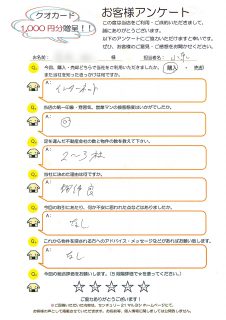 クオカード
1,000円分贈呈!!
お客様アンケート
この度は当店をご利用・ご成約いただきまして、
誠にありがとうございます。
以下のアンケートにご協力いただけますと幸いです。
ぜひ、お客様のご意見・ご感想をお聞かせください。
お名前: 様 担当者名:
Q. 今回、購入・売却どちらで当社をご利用いただきましたか。(購入・売却)
または当社を知ったきっかけは何ですか。
A: インターネット
Q. 当店の第一印象・雰囲気、営業マンの接客態度はいかがでしたか。
A:
Q. 足を運んだ不動産会社の数と物件の数を教えて下さい。
A: 2～3社
Q. 当社に決めた理由は何ですか。
A: 物件
Q. 今回の取引にあたり、何か不安に思われた点などはありましたか。
A: なし
Q. これから物件を探される方へのアドバイス・メッセージなどがあればお願い致します。
A: なし
Q. 今回の総合評価をお願いします。(5段階評価で★を塗ってください。)
☆☆☆☆☆
ご協力ありがとうございます!